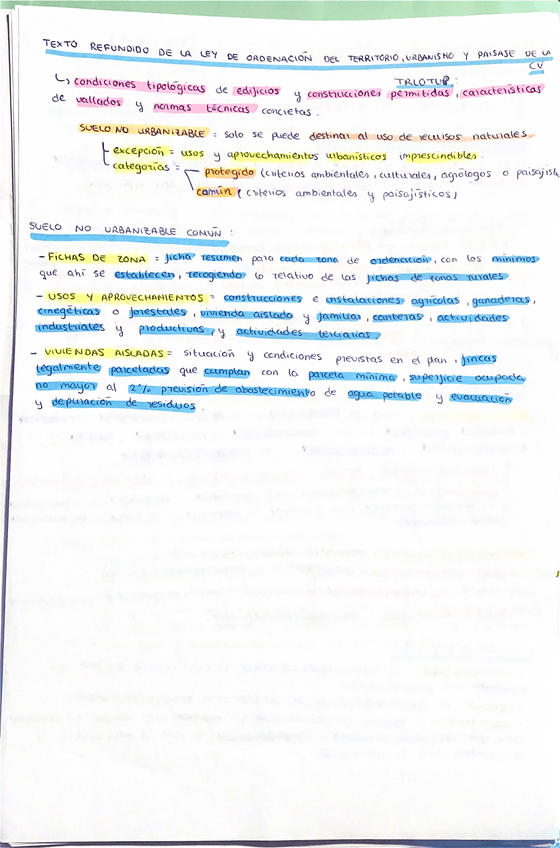 TEXTO REFUNDIDO DE LA LEY DE ORDENACIÓN DEL TERRITORIO, URBANISMO Y PAISAJE DE LA
CV
TRLOTUP:
↳ condiciones tipológicas de edificios y construcciones permitidas, características
de vallados y normas técnicas concretas.
SUELO NO URBANIZABLE = solo se puede destinar al uso de recursos naturales
excepción = usos y aprovechamientos urbanísticos imprescindibles.
categorías = protegido (criterios ambientales, culturales, agrólogos o paisajíst
común (criterios ambientales y paisajísticos)
SUELO NO URBANIZABLE COMÚN:
- FICHAS DE ZONA = ficha resumen para cada zona de ordenación, con los mínimos
que ahí se establecen, recogiendo lo relativo de las fichas de zonas rurales.
- USOS Y APROVECHAMIENTOS = construcciones e instalaciones agrícolas, ganaderas,
cinegéticas o forestales, vivienda aislada y familiar, canteras, actividades
industriales y productivas, y actividades terciarias.
- VIVIENDAS AISLADAS = situación y condiciones previstas en el plan, fincas
legalmente parceladas que cumplan con la parcela mínima, superficie ocupada
no mayor al 2% previsión de abastecimiento de agua potable y evacuación
y depuración de residuos.